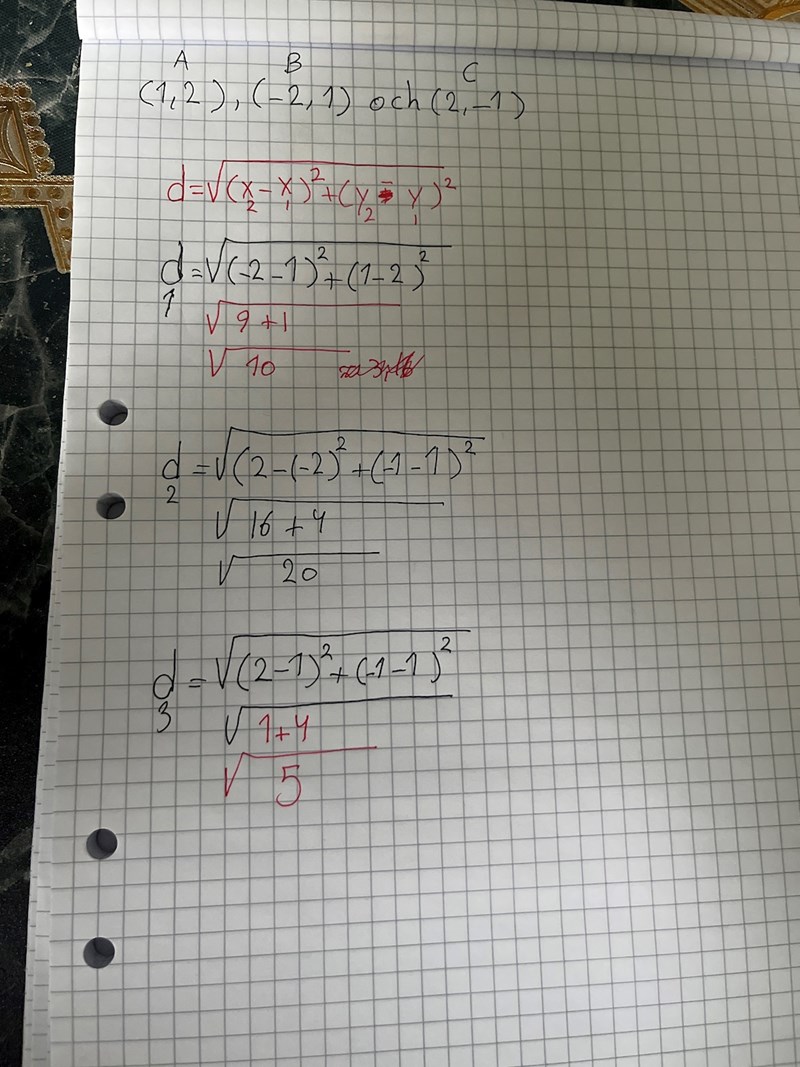 A B C
(1,2), (-2,1) och (2,-1)
d=√(x₂-x₁)²+(y₂-y₁)²
d₁=√(-2-1)²+(1-2)²
√9+1
√10
d₂=√(2-(-2)²+(-1-1)²
√16+4
√20
d₃=√(2-1)²+(-1-1)²
√1+4
√5